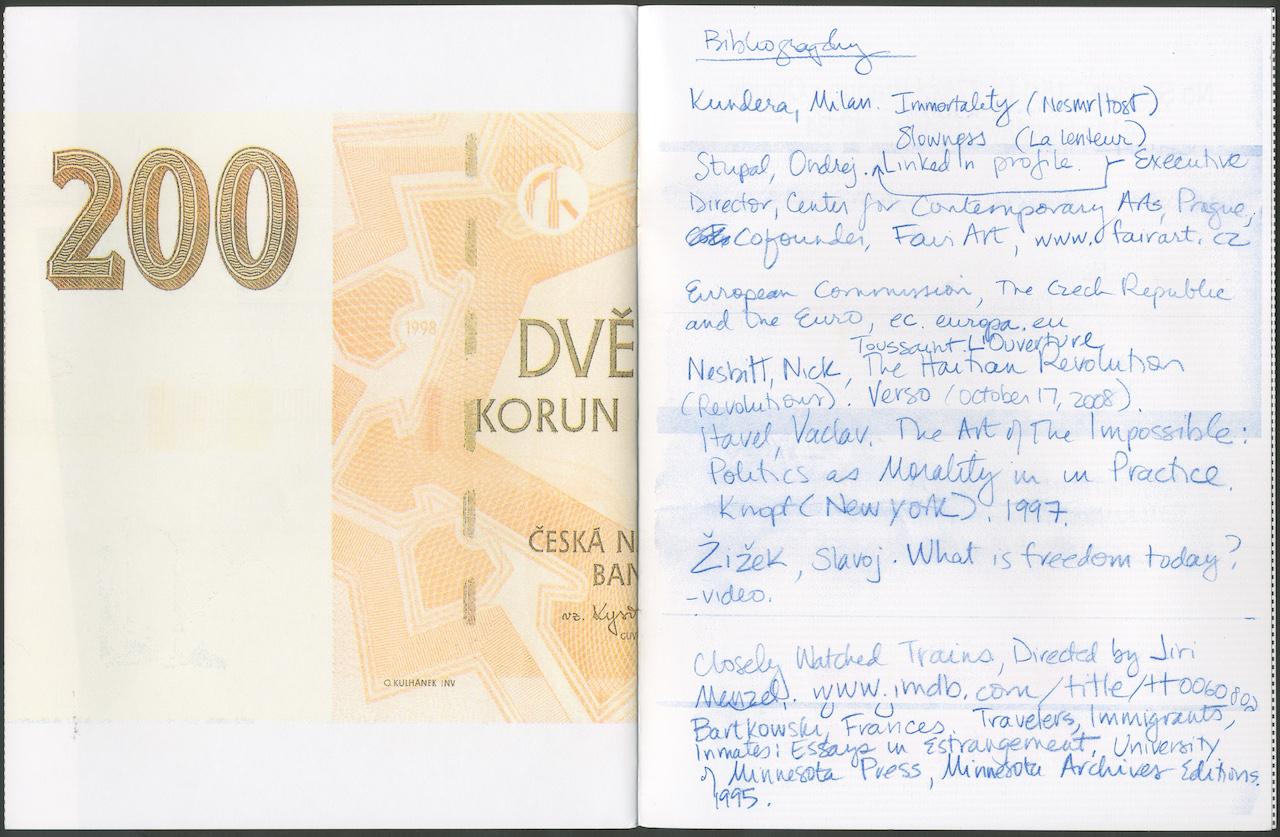 200
1998
DVĚ
KORUN
ČESKÁ N
BAN
vz. Kysi
GUV
O.KULHÁNEK INV
Bibliography
Kundera, Milan. Immortality (Nesmrtlost)
Slowness (La lenteur)
Stupal, Ondrej. Linked In profile. Executive
Director, Center for Contemporary Arts, Prague,
Cofounder, Fair Art, www.fairart.cz
European Commission, The Czech Republic
and the Euro, ec.europa.eu
Toussaint L'Ouverture
Nesbitt, Nick, The Haitian Revolution
(Revolutions). Verso (October 17, 2008).
Havel, Vaclav. The Art of The Impossible:
Politics as Morality in in Practice.
Knopf (New York). 1997.
Žižek, Slavoj. What is freedom today?
-video.
Closely Watched Trains, Directed by Jiri
Menzel. www.imdb.com/title/tt0060802
Bartkowski, Frances. Travelers, Immigrants,
Inmates: Essays in Estrangement. University
of Minnesota Press, Minnesota Archives Editions.
1995.